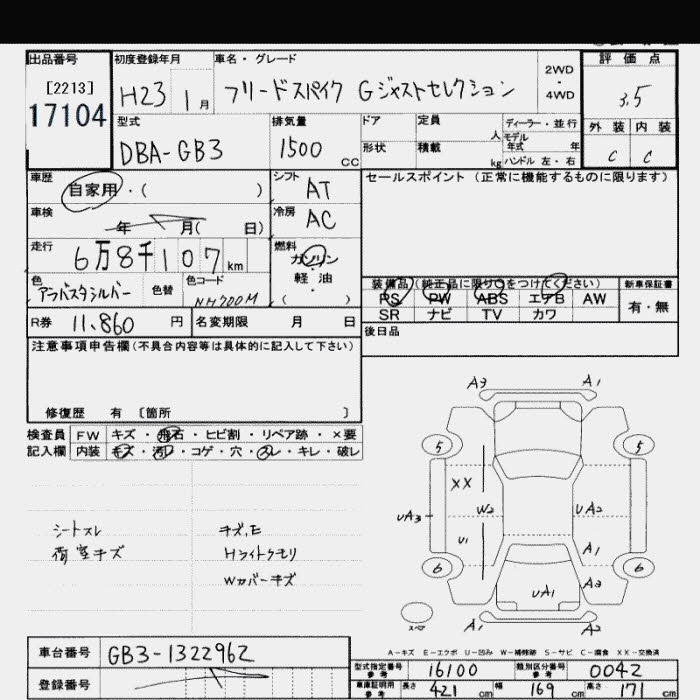 出品番号 初度登録年月 車名・グレード 評価点
[2213] 17104 H23 1月 フリードスパイク Gジャストセレクション 2WD・4WD 3.5
型式 排気量 ドア 定員 人 ディーラー・並行 外装 内装
DBA-GB3 1500 CC 形状 積載 kg モデル年式 年 ハンドル 左・右 C C
車歴 自家用・( ) シフト AT セールスポイント (正常に機能するものに限ります)
車検 年 月( 日) 冷房 AC
走行 6万8千107 km 燃料 ガソリン・軽油 ( )
色 アラバスタシルバー 色替 色コード NH700M
装備品(純正品に限り○をつけてください) 新車保証書
PS PW ABS エアB AW 有・無
SR ナビ TV カワ
R券 11,860 円 名変期限 月 日 後日品
注意事項申告欄(不具合内容等は具体的に記入して下さい)
修復歴 有 〔箇所 〕
検査員 FW キズ・飛石・ヒビ割・リペア跡・×要
記入欄 内装 キズ・汚レ・コゲ・穴・スレ・キレ・破レ
シートスレ キズ,E
荷室キズ Hライトクモリ
Wカバーキズ
A3 A1
5 5
XX
UA3 W2 UA2
U1 A1
6 A3 6
UA1
スペア A1 A2
A-キズ E-エクボ U-凹み W-補修跡 S-サビ C-腐食 XX-交換済
車台番号 GB3-1322962 型式指定番号 参考 16100 類別区分番号 参考 0042
登録番号 車庫証明用 参考 長さ 421 cm 幅 169 cm 高さ 171 cm